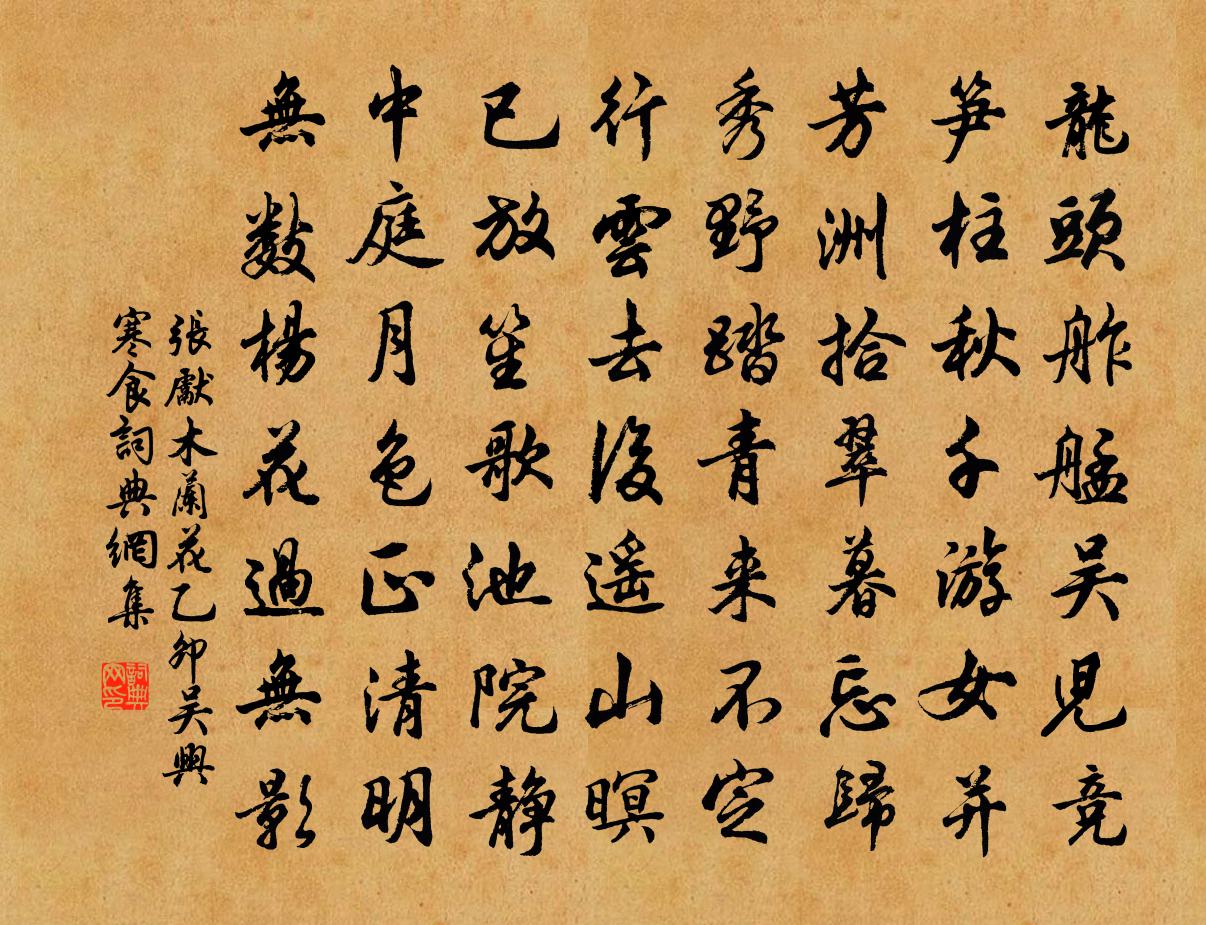 龍頭舴艋吳児竞
笋柱秋千游女并
芳洲拾翠暮忘歸
秀野踏青来不定
行雲去後遥山暝
已放笙歌池院静
中庭月色正清明
無數楊花過無影
張先木蘭花乙卯吳興
寒食詞典網集
詞典网印